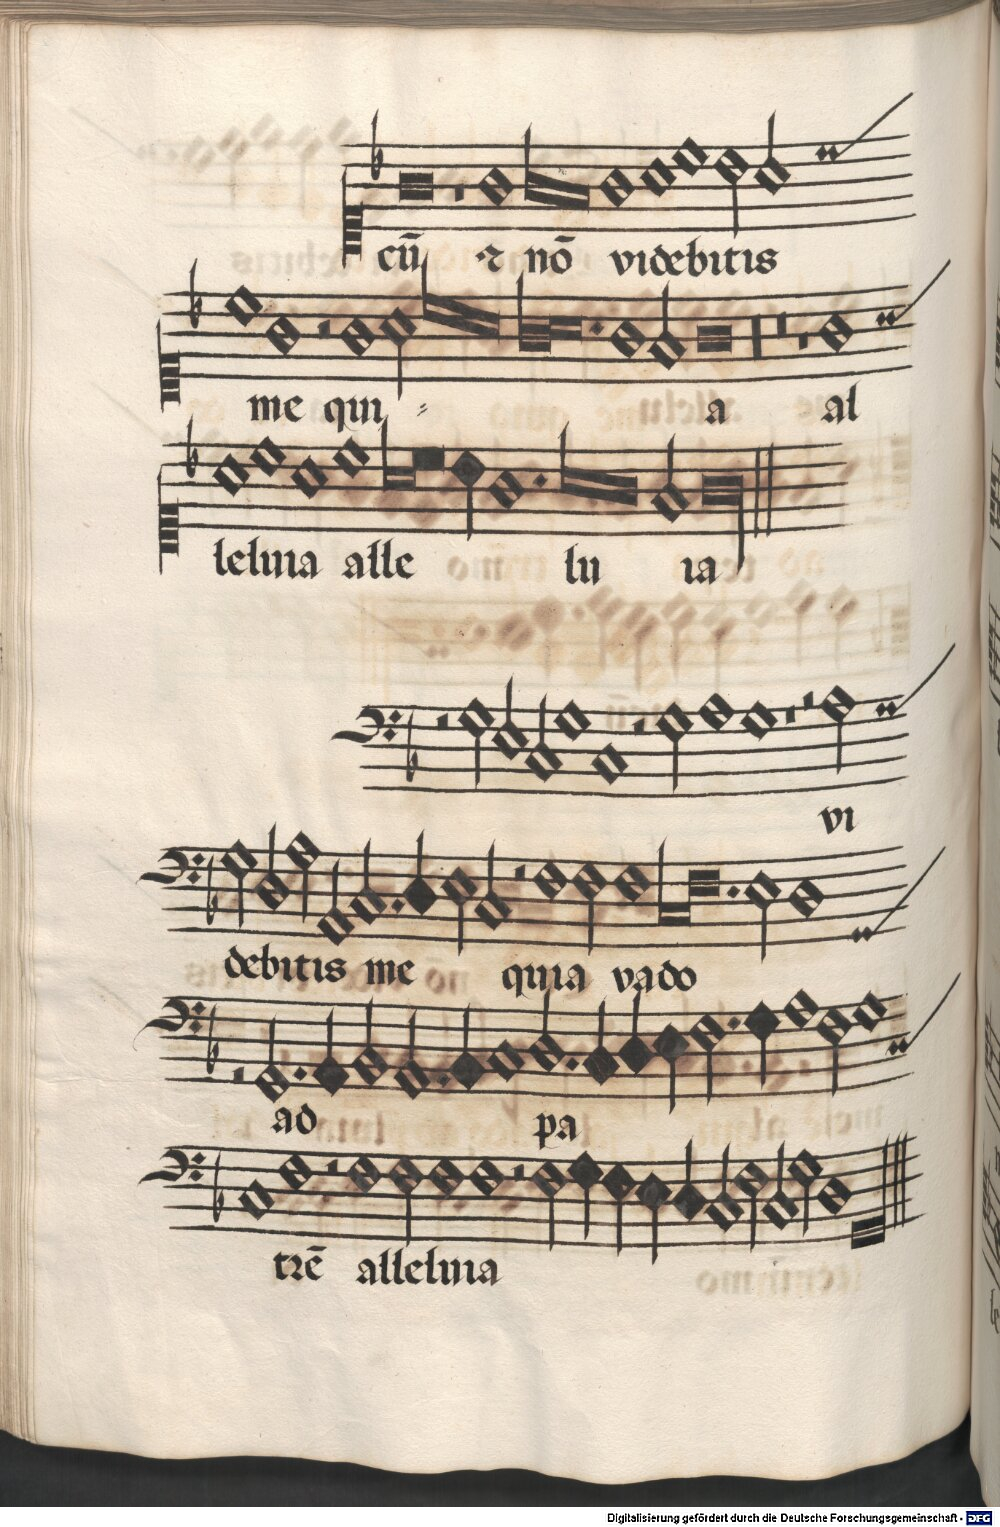 cū ⁊ nō videbitis
me qui a al
leluia alle lu ia
vi
debitis me quia vado
ad pa
trē alleluia
Digitalisierung gefördert durch die Deutsche Forschungsgemeinschaft - DFG